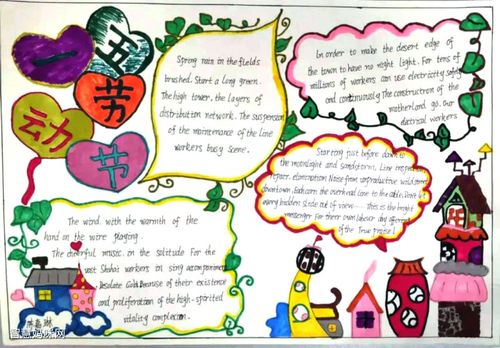 五一
劳
动
节
Spring rain in the fields
brushed. Start a long green.
The high tower. the layers of
distribution network. The suspension
of the maintenance of the line
workers busy scene.
In order to make the desert edge of
the town to have no night light. For tens of
millions of workers can use electricity safely
and continuously The construction of the
motherland go. Our
electrical workers
Starting just before dawn to
the moonlight and sandstorm. Line inspection
repair. elimination Noise from unproductive
downtown. Each corn the overhead line to the cable.
every hidden side out of view... This is the bright
messenger For their own labour day
of the True praise!
The wind with the warmth of the
hand on the wire playing.
The cheerful music. in the solitude For the
vast workers in sing accompaniment
Desolate Gobi Because of their existence
and proliferation of the high-spirited
vitality complexion.
智慧妈咪网